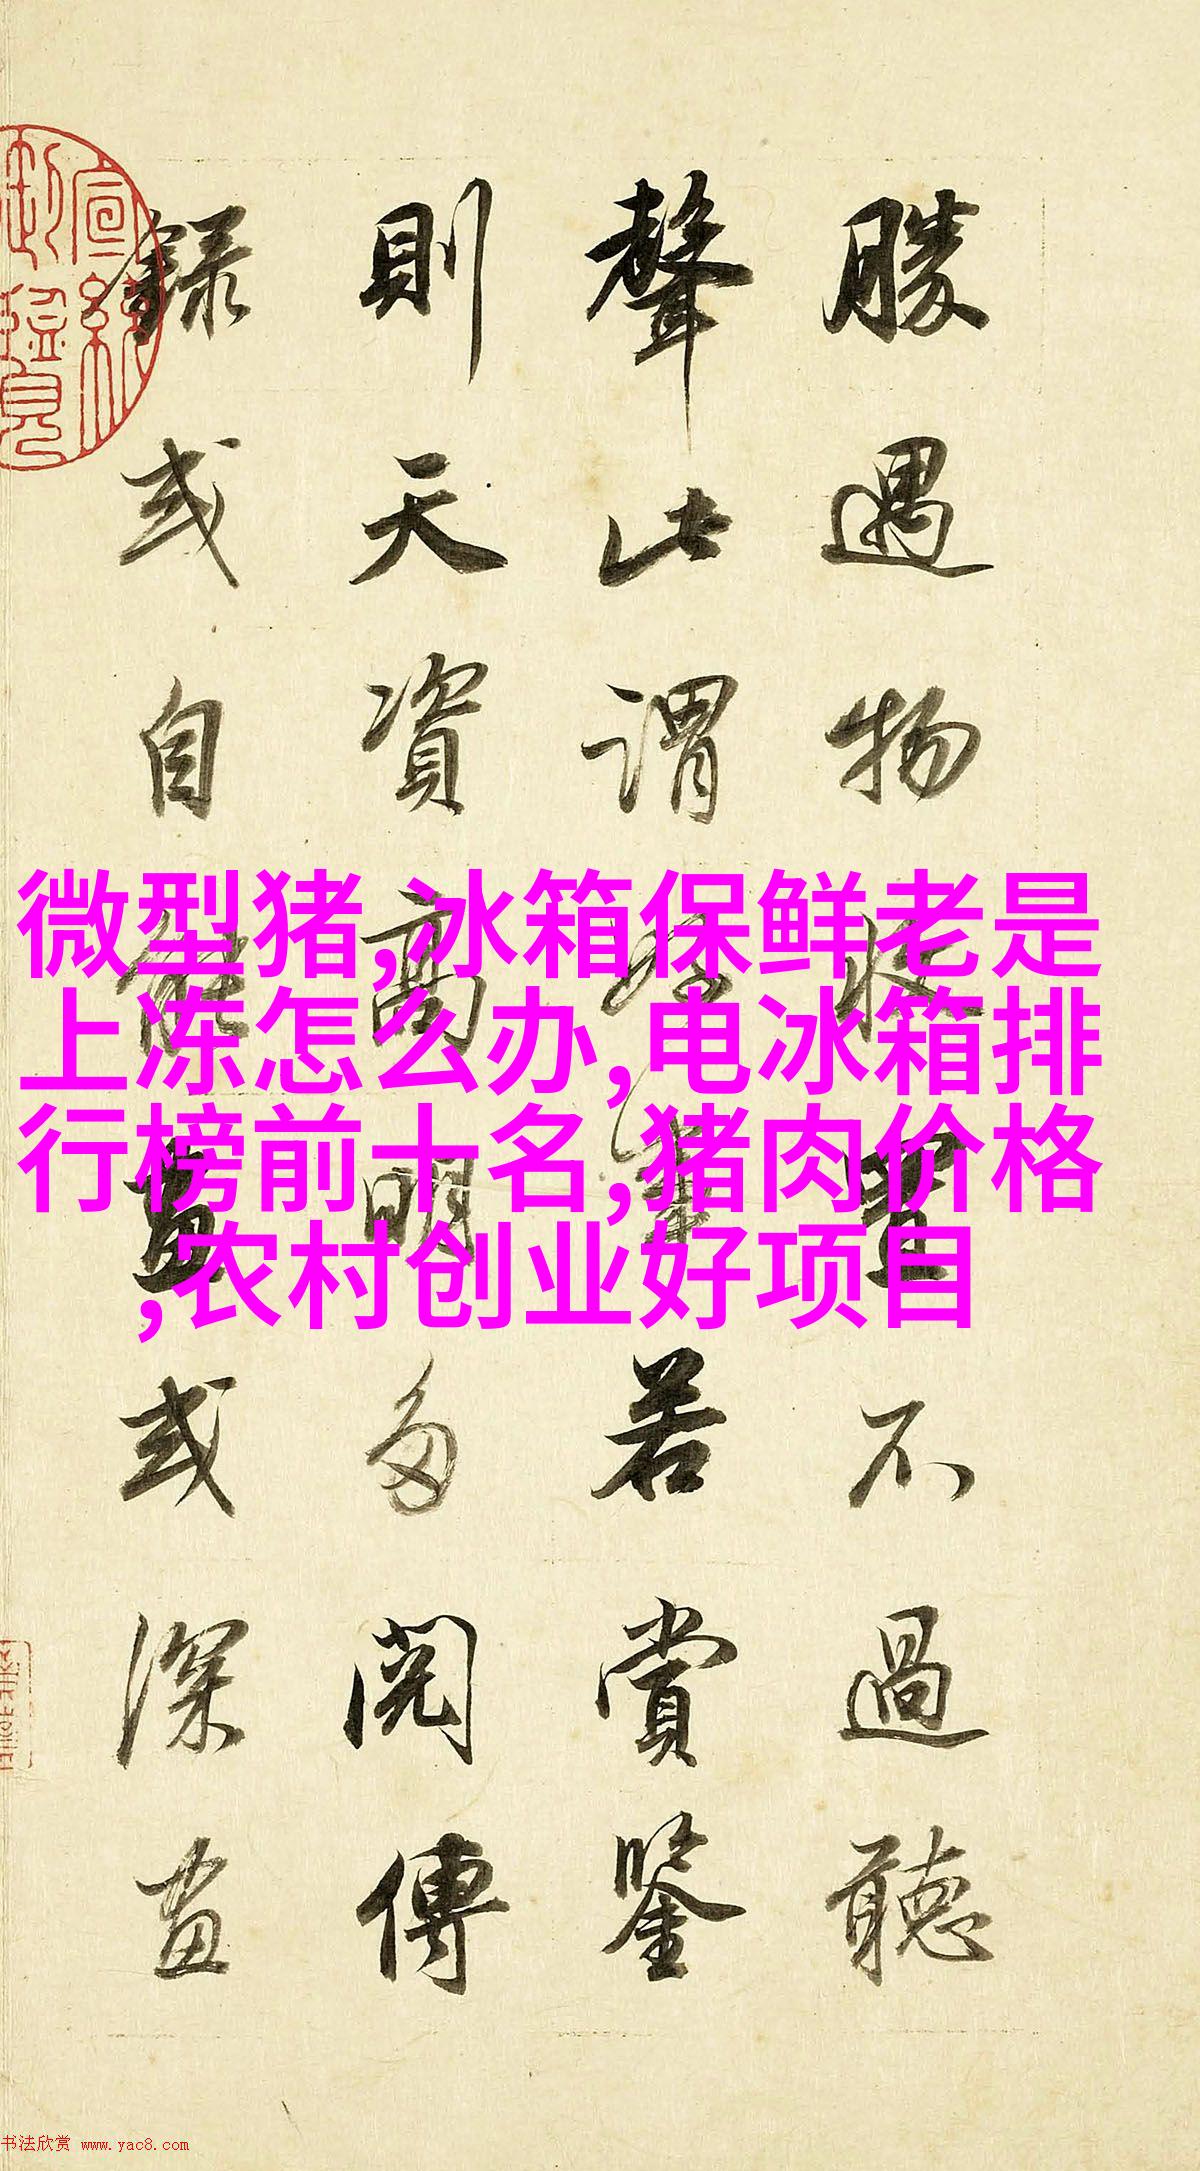 勝遇物收置不過聽
聲此謂好事若賞鑒
則天資高明多閱傳
錄或自能畫或深畫
微型猪,冰箱保鲜老是
上冻怎么办,电冰箱排
行榜前十名,猪肉价格
,农村创业好项目
书法欣赏 www.yac8.com